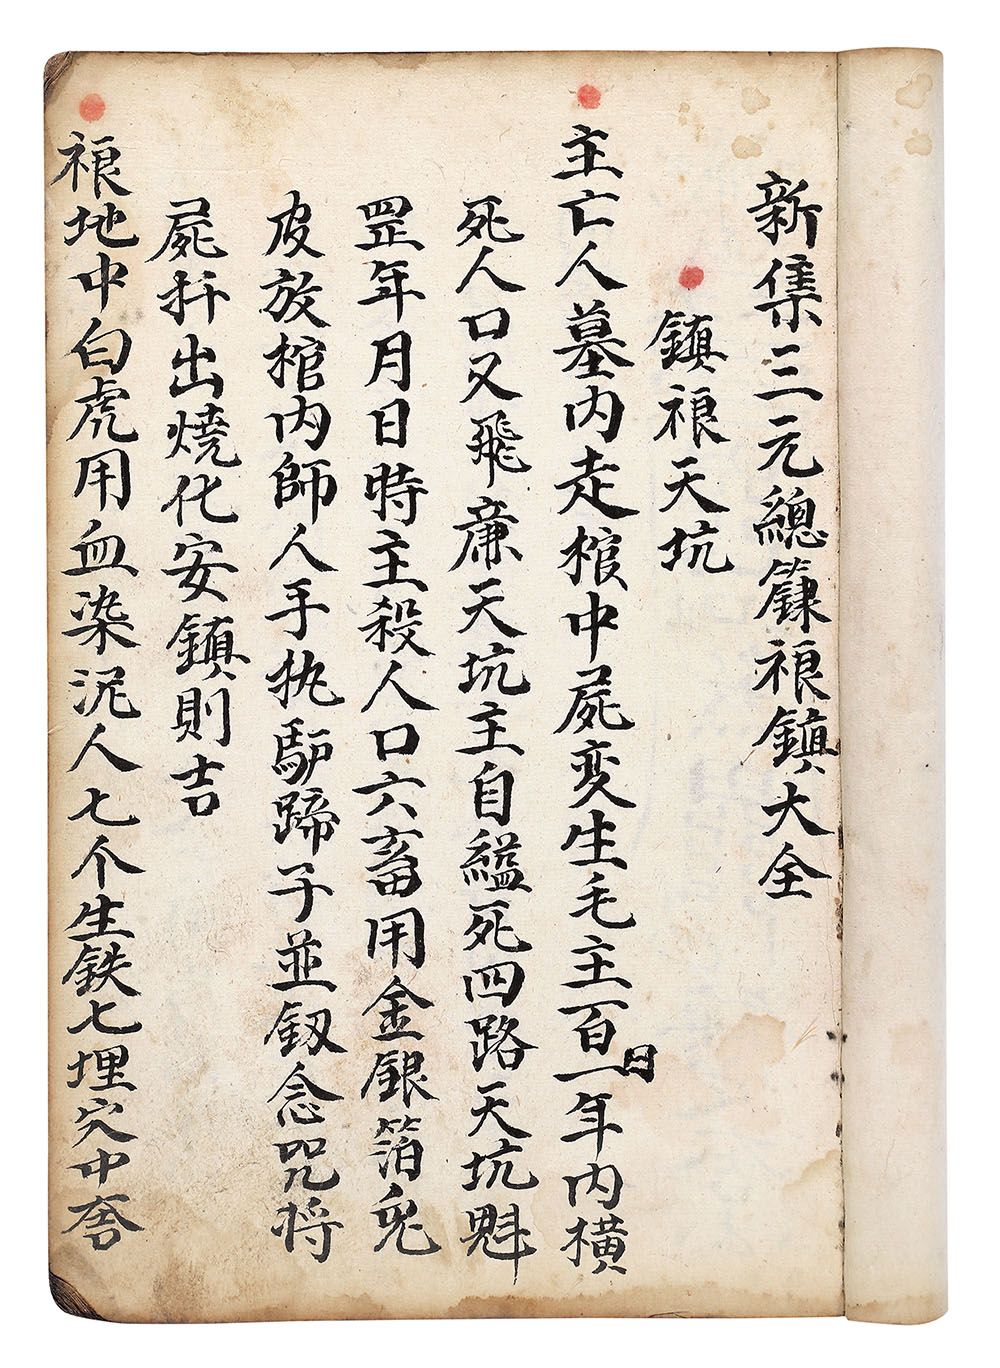 新集三元總籙䘨鎮大全
鎮䘨天坑
主亡人墓内走棺中屍变生毛主百日一年内横
死人口又飛廉天坑主自縊死四路天坑魁
罡年月日時主殺人口六畜用金銀箔兎
皮放棺内師人手执馿蹄子並釼念咒将
屍扦出燒化安鎮則吉
䘨地中白虎用血染泥人七个生鉄七埋穴中